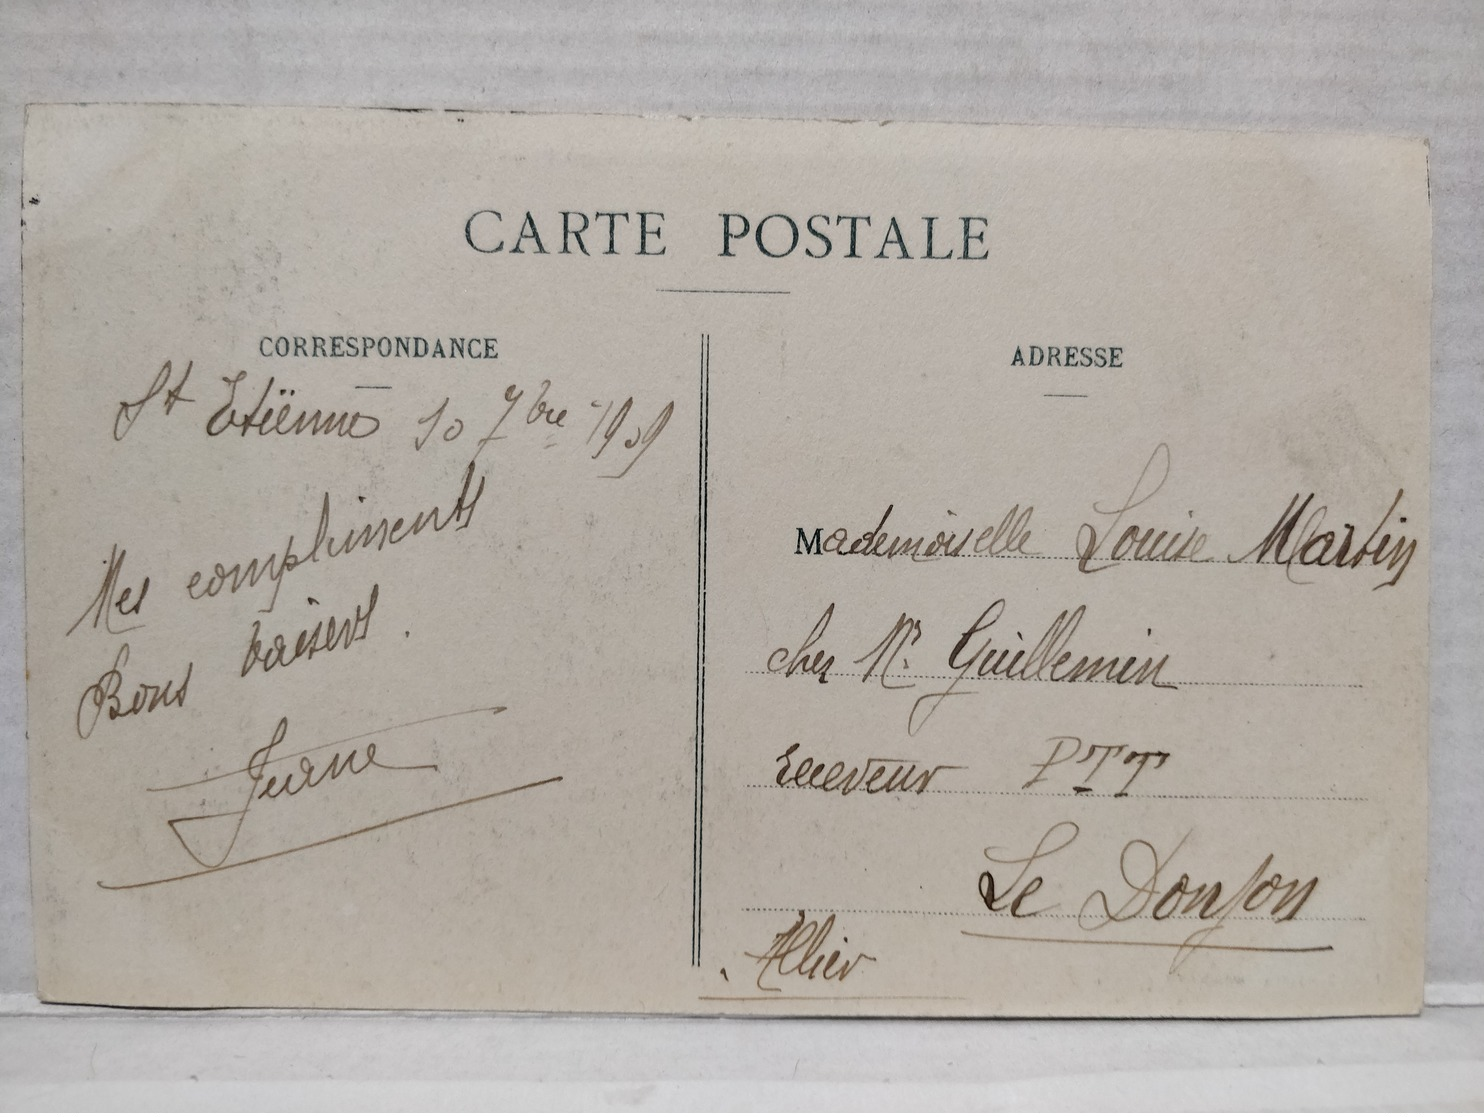 CARTE POSTALE
CORRESPONDANCE
St Etiënne 10 7bre 1909
Mes compliments
Bons baisers.
Jeane
ADRESSE
Mademoiselle Louise Martin
chez Mr. Guillemin
receveur PTT
Le Donjon
Allier